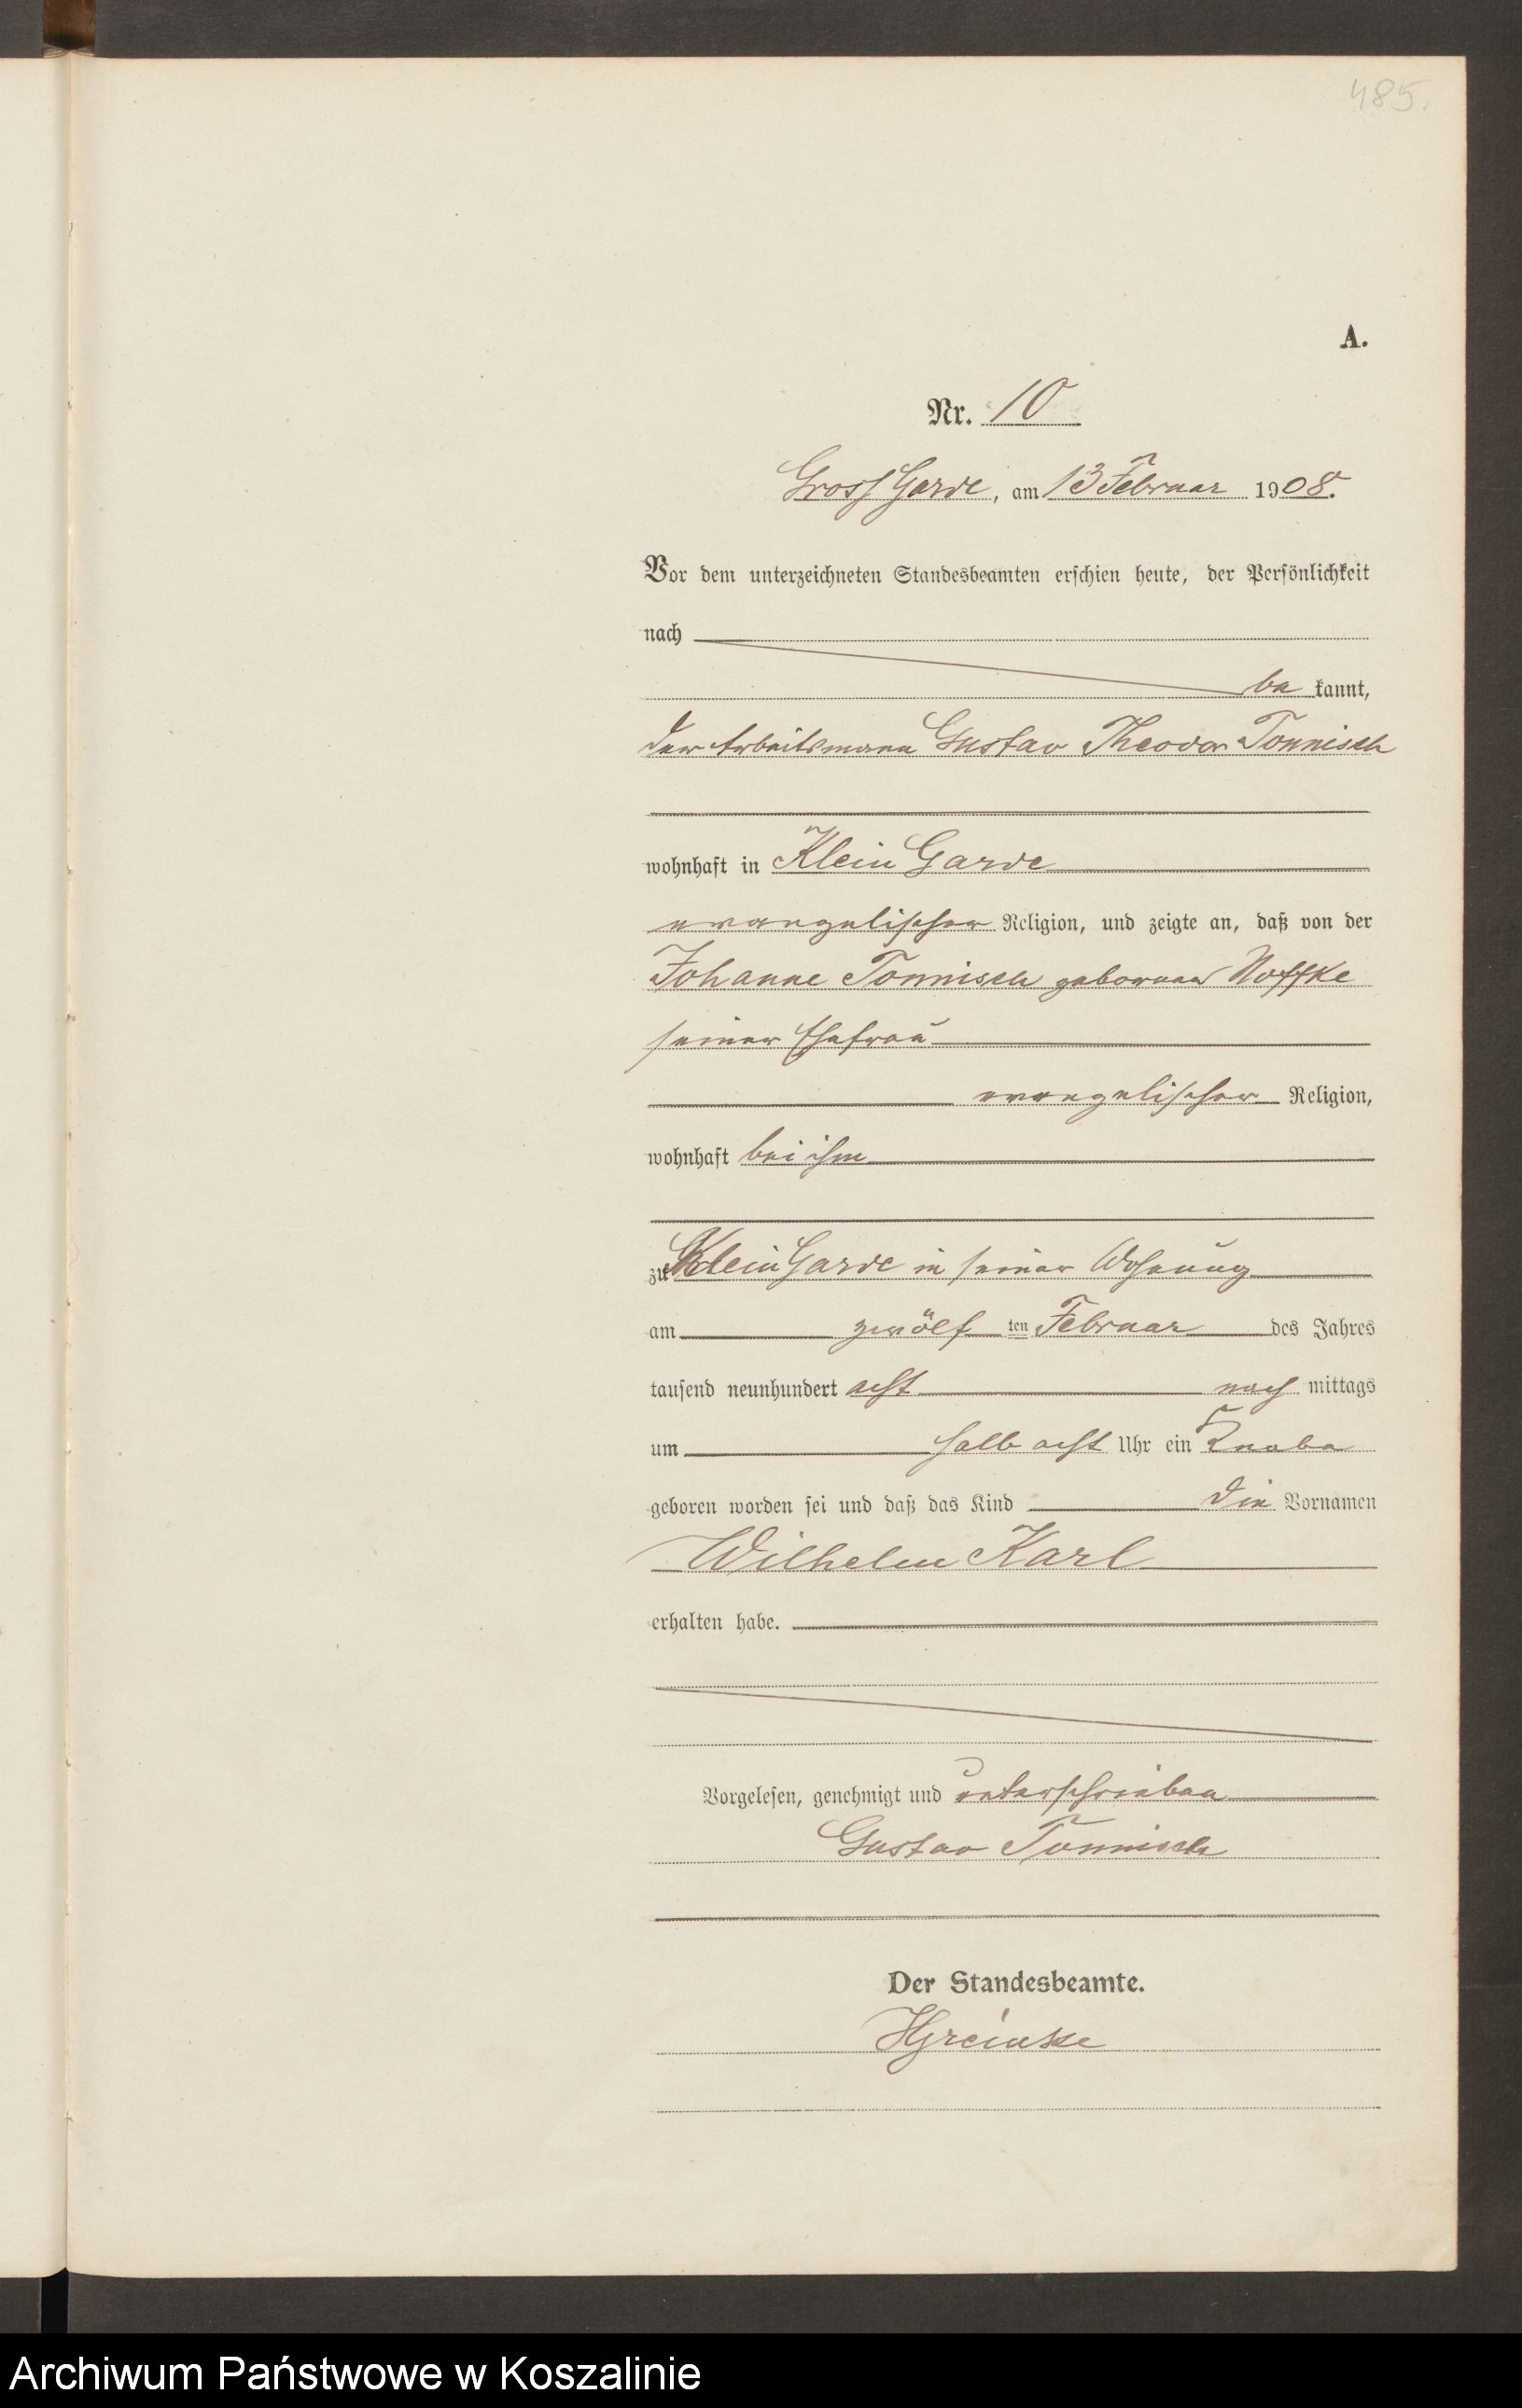 485.
A.
Nr. 10
Gross Garde, am 13 Februar 1908.
Vor dem unterzeichneten Standesbeamten erschien heute, der Persönlichkeit
nach
be kannt,
der Arbeitsmann Gustav Theodor Tonnisch
wohnhaft in Klein Garde
evangelischer Religion, und zeigte an, daß von der
Johanne Tonnisch geborenen Noffke
seiner Ehefrau
evangelischer Religion,
wohnhaft bei ihm
zu Klein Garde in seiner Wohnung
am zwölf ten Februar des Jahres
tausend neunhundert acht nach mittags
um halb acht Uhr ein Knabe
geboren worden sei und daß das Kind die Vornamen
Wilhelm Karl
erhalten habe.
Vorgelesen, genehmigt und unterschrieben
Gustav Tonnisch
Der Standesbeamte.
Archiwum Państwowe w Koszalinie